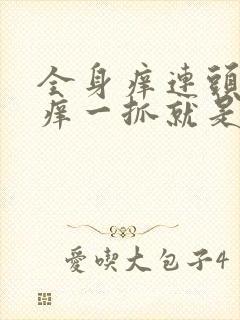 全身痒連頭
痒一抓就是
愛喫大包子4